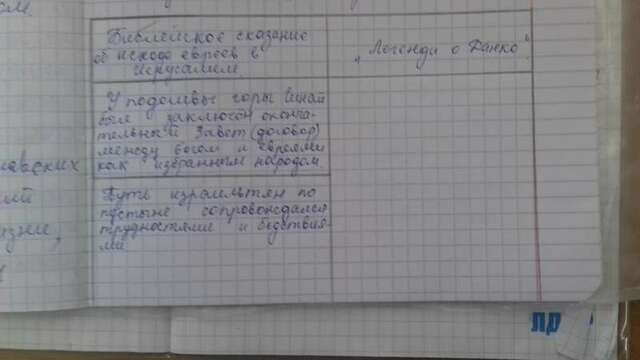 ом
Библейское сказание
об исходе евреев в
Иерусалим
„Легенда о Данко"
У подошвы горы Синай
был заключён оконча-
тельный Завет (договор)
между богом и евреями
как избранным народом
Путь израильтян по
пустыне сопровождался
трудностями и бедствия-
ми
авских
ий
изни,